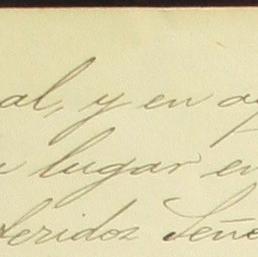 al, y en
lugar en
feridos Seño